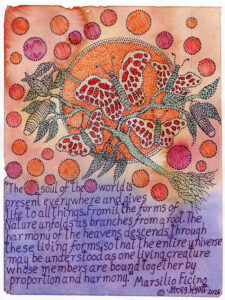 "The soul of the world is
present everywhere and gives
life to all things. From it the forms of
Nature unfold as branches from a root. The
harmony of the heavens descends through
these living forms, so that the entire universe
may be understood as one living creature
whose members are bound together by
proportion and harmony."
Marsilio Ficino
2026